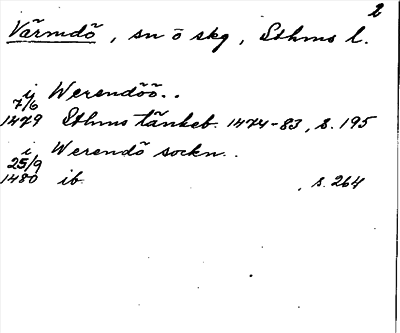 2
Värmdö, sn o skg, Sthms l.
ij Werendöö..
7/6
1479 Sthms tänkeb. 1474-83, s. 195
i Werendö sockn..
25/9
1480 ib. , s. 264